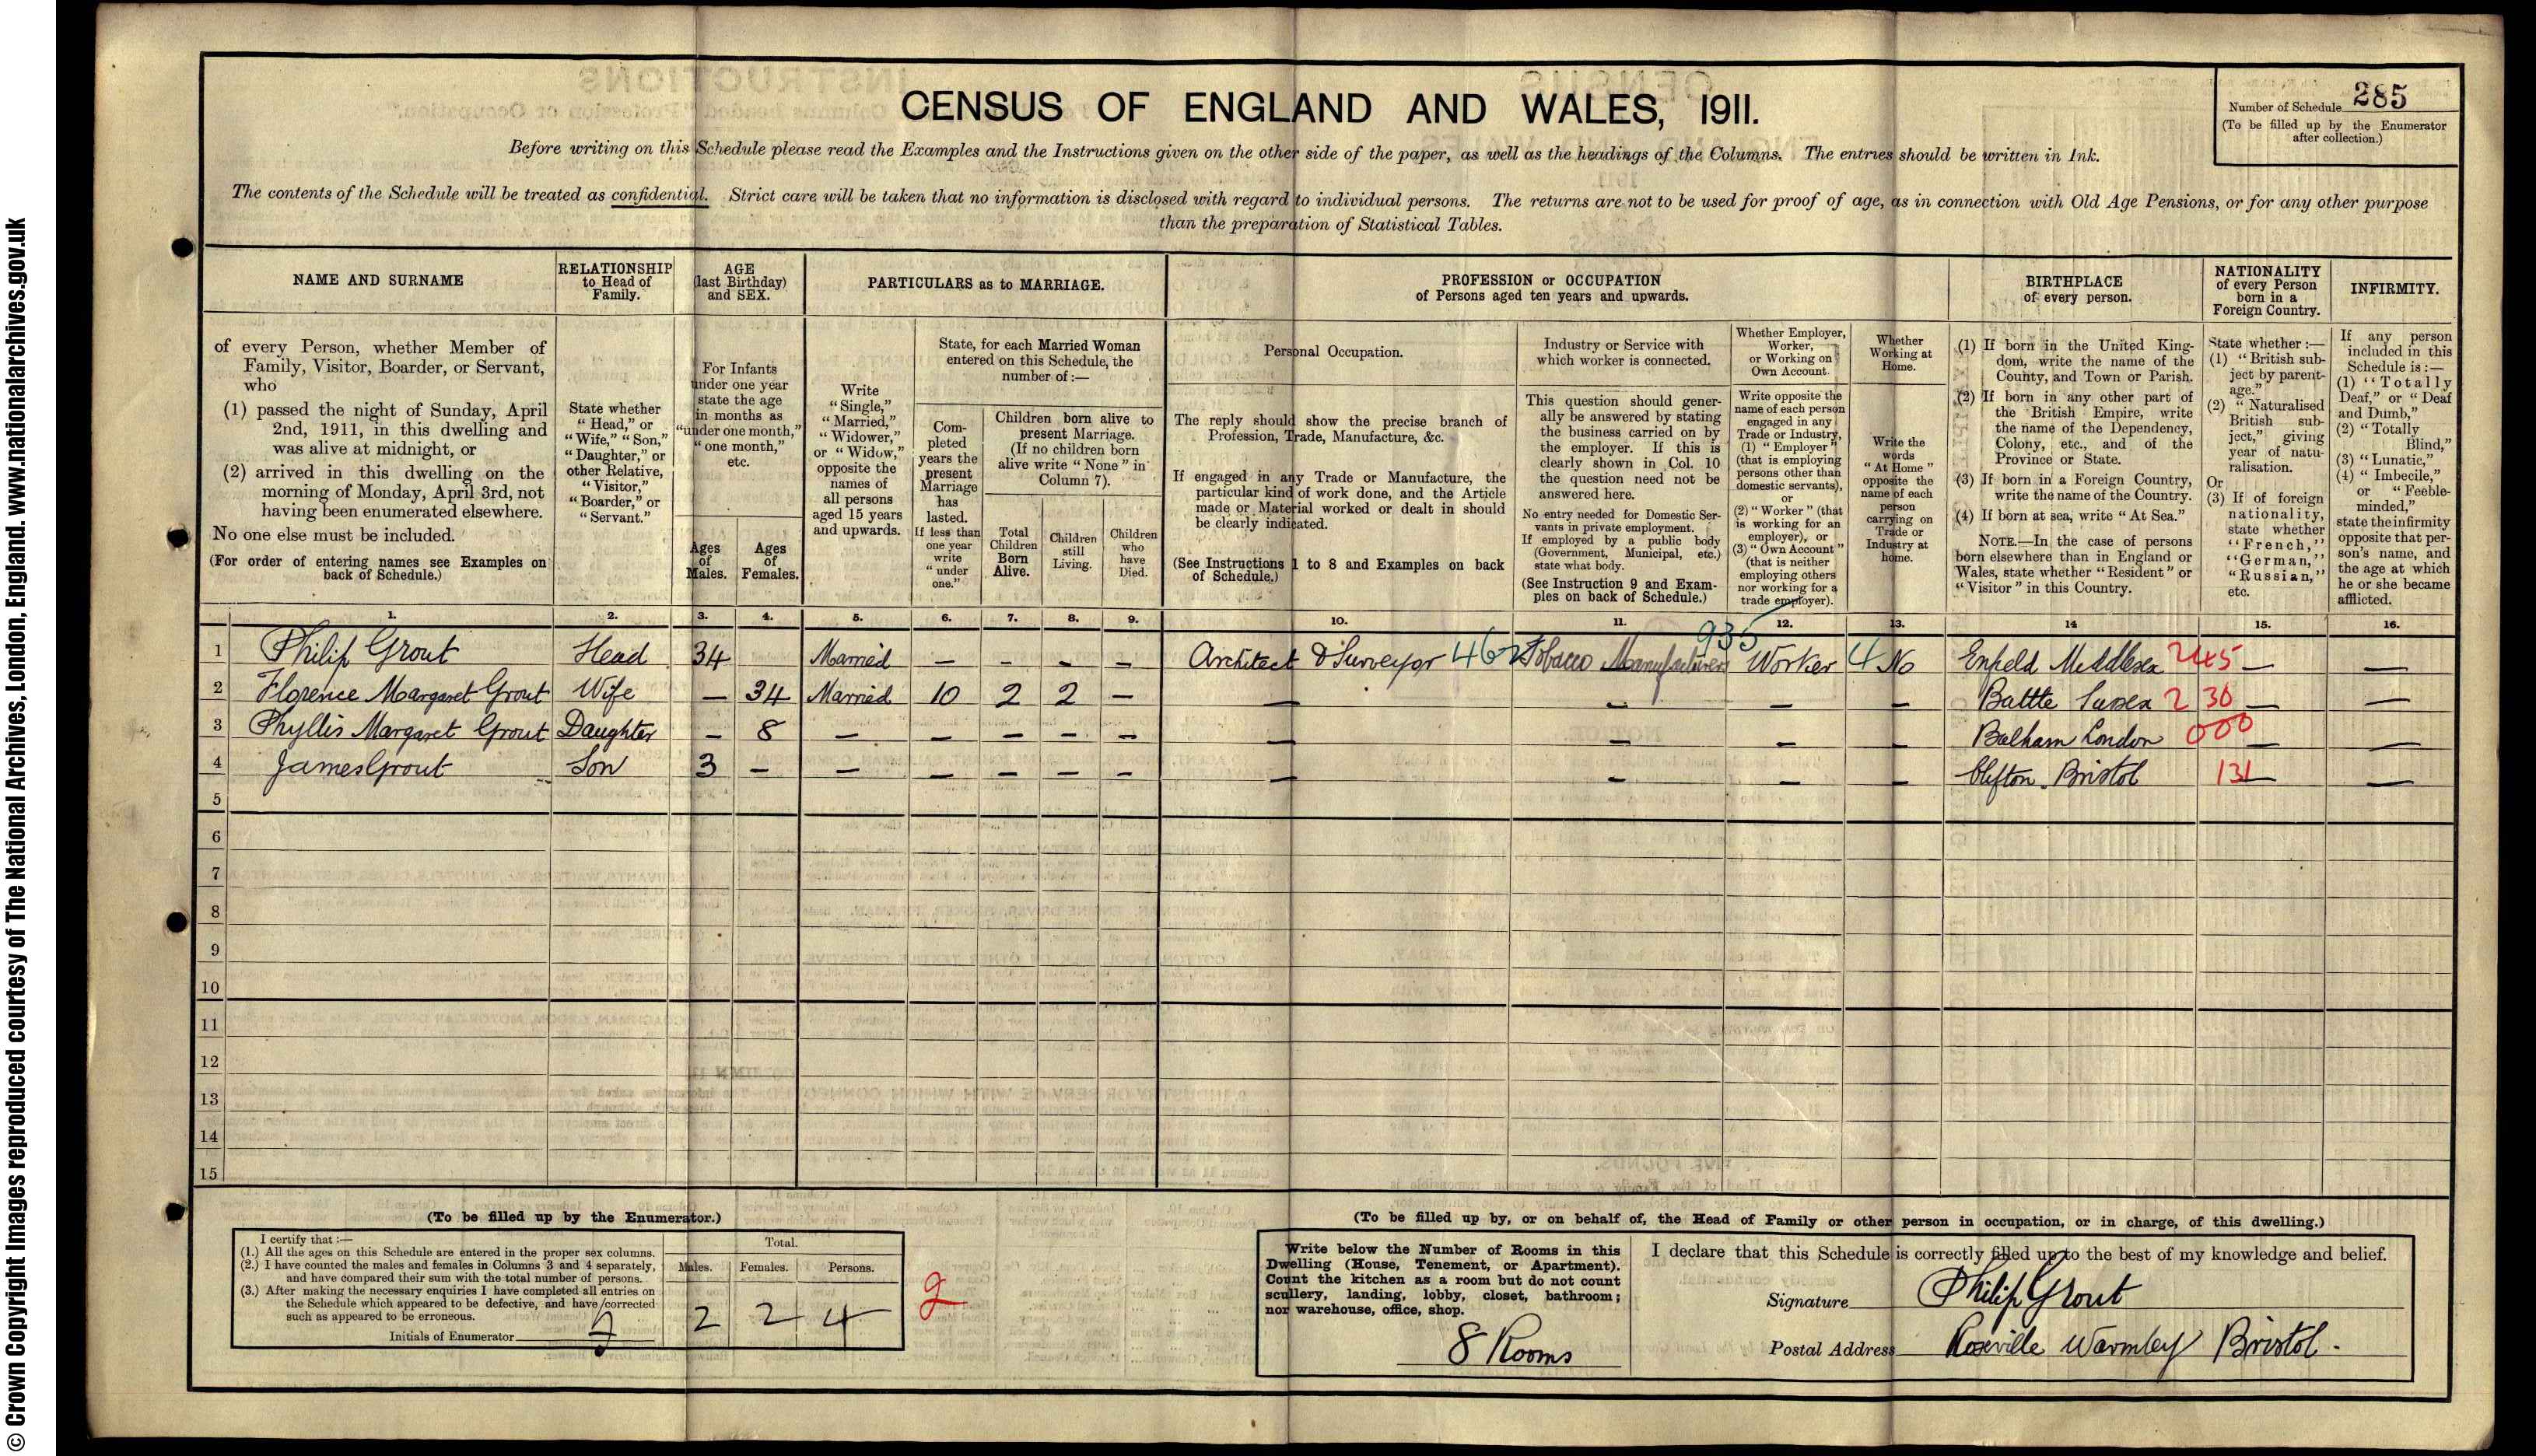 © Crown Copyright Images reproduced courtesy of The National Archives, London, England. www.nationalarchives.gov.uk
CENSUS OF ENGLAND AND WALES, 1911.
Number of Schedule 285
(To be filled up by the Enumerator
after collection.)
Before writing on this Schedule please read the Examples and the Instructions given on the other side of the paper, as well as the headings of the Columns. The entries should be written in Ink.
The contents of the Schedule will be treated as confidential. Strict care will be taken that no information is disclosed with regard to individual persons. The returns are not to be used for proof of age, as in connection with Old Age Pensions, or for any other purpose
than the preparation of Statistical Tables.
NAME AND SURNAME
of every Person, whether Member of
Family, Visitor, Boarder, or Servant,
who
(1) passed the night of Sunday, April
2nd, 1911, in this dwelling and
was alive at midnight, or
(2) arrived in this dwelling on the
morning of Monday, April 3rd, not
having been enumerated elsewhere.
No one else must be included.
(For order of entering names see Examples on
back of Schedule.)
RELATIONSHIP
to Head of
Family.
State whether
"Head," or
"Wife," "Son,"
"Daughter," or
other Relative,
"Visitor,"
"Boarder," or
"Servant."
AGE
(last Birthday)
and SEX.
For Infants
under one year
state the age
in months as
"under one month,"
"one month,"
etc.
Ages
of
Males.
Ages
of
Females.
PARTICULARS as to MARRIAGE.
Write
"Single,"
"Married,"
"Widower,"
or "Widow,"
opposite the
names of
all persons
aged 15 years
and upwards.
State, for each Married Woman
entered on this Schedule, the
number of:—
Com-
pleted
years the
present
Marriage
has
lasted.
If less than
one year
write
"under
one."
Children born alive to
present Marriage.
(If no children born
alive write "None" in
Column 7).
Total
Children
Born
Alive.
Children
still
Living.
Children
who
have
Died.
PROFESSION or OCCUPATION
of Persons aged ten years and upwards.
Personal Occupation.
The reply should show the precise branch of
Profession, Trade, Manufacture, &c.
If engaged in any Trade or Manufacture, the
particular kind of work done, and the Article
made or Material worked or dealt in should
be clearly indicated.
(See Instructions 1 to 8 and Examples on back
of Schedule.)
Industry or Service with
which worker is connected.
This question should gener-
ally be answered by stating
the business carried on by
the employer. If this is
clearly shown in Col. 10
the question need not be
answered here.
No entry needed for Domestic Ser-
vants in private employment.
If employed by a public body
(Government, Municipal, etc.)
state what body.
(See Instruction 9 and Exam-
ples on back of Schedule.)
Whether Employer,
Worker,
or Working on
Own Account.
Write opposite the
name of each person
engaged in any
Trade or Industry,
(1) "Employer"
(that is employing
persons other than
domestic servants),
or
(2) "Worker" (that
is working for an
employer), or
(3) "Own Account"
(that is neither
employing others
nor working for a
trade employer).
Whether
Working at
Home.
Write the
words
"At Home"
opposite the
name of each
person
carrying on
Trade or
Industry at
home.
BIRTHPLACE
of every person.
(1) If born in the United King-
dom, write the name of the
County, and Town or Parish.
(2) If born in any other part of
the British Empire, write
the name of the Dependency,
Colony, etc., and of the
Province or State.
(3) If born in a Foreign Country,
write the name of the Country.
(4) If born at sea, write "At Sea."
NOTE.—In the case of persons
born elsewhere than in England or
Wales, state whether "Resident" or
"Visitor" in this Country.
NATIONALITY
of every Person
born in a
Foreign Country.
State whether:—
(1) "British sub-
ject by parent-
age."
(2) "Naturalised
British sub-
ject," giving
year of natu-
ralisation.
Or
(3) If of foreign
nationality,
state whether
"French,"
"German,"
"Russian,"
etc.
INFIRMITY.
If any person
included in this
Schedule is:—
(1) "Totally
Deaf," or "Deaf
and Dumb,"
(2) "Totally
Blind,"
(3) "Lunatic,"
(4) "Imbecile,"
or "Feeble-
minded,"
state the infirmity
opposite that per-
son's name, and
the age at which
he or she became
afflicted.
1. 2. 3. 4. 5. 6. 7. 8. 9. 10. 11. 12. 13. 14 15. 16.
1 Philip Grout Head 34 Married — — — — Architect & Surveyor 462 Tobacco Manufacturers 935 Worker 4 No Enfield Middlesex 245 — —
2 Florence Margaret Grout Wife — 34 Married 10 2 2 — — — — — Battle Sussex 230 — —
3 Phyllis Margaret Grout Daughter — 8 — — — — — — — — — Balham London 000 — —
4 James Grout Son 3 — — — — — — — — — — Clifton Bristol 131 — —
5
6
7
8
9
10
11
12
13
14
15
(To be filled up by the Enumerator.)
I certify that:—
(1.) All the ages on this Schedule are entered in the proper sex columns.
(2.) I have counted the males and females in Columns 3 and 4 separately,
and have compared their sum with the total number of persons.
(3.) After making the necessary enquiries I have completed all entries on
the Schedule which appeared to be defective, and have corrected
such as appeared to be erroneous.
Initials of Enumerator
Total.
Males. Females. Persons.
2 2 4
2
(To be filled up by, or on behalf of, the Head of Family or other person in occupation, or in charge, of this dwelling.)
Write below the Number of Rooms in this
Dwelling (House, Tenement, or Apartment).
Count the kitchen as a room but do not count
scullery, landing, lobby, closet, bathroom;
nor warehouse, office, shop.
8 Rooms
I declare that this Schedule is correctly filled up to the best of my knowledge and belief.
Signature Philip Grout
Postal Address Roseville Warmley Bristol.